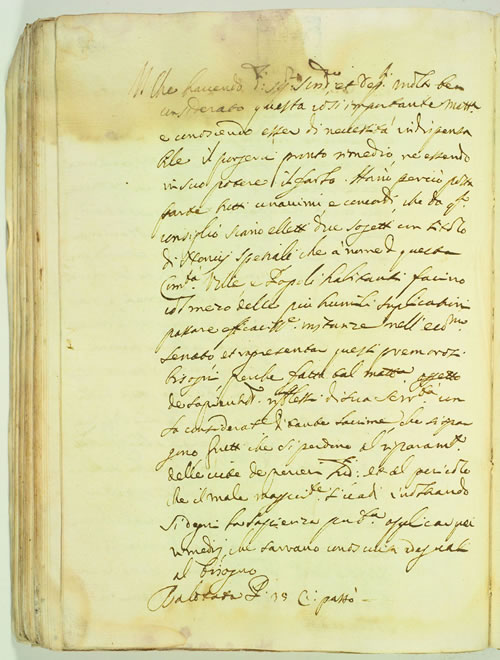 Che havendo di: SS:ri Sind:ci et Dep:ti molto ben
considerato questa così importante matt:a
e conoscendo esser di necessità indispensa
bile il porgervi pronto rimedio, nè essendo
in suo potere il farlo. Hanno perciò
tutti unanimi, e concordi, che da q:to
consiglio siano eletti due sogetti con titolo
di Noncij spetiali che à nome di questa
Com:tà Ville e Popoli habitanti facino
col mezo delle più humili suplicationi
passare efficaciss:e instanze nell'ecc:mo
Senato et rapresentar questi premorosi
bisogni, perche fatta tal matt:a
de sapientis:mi riflessi di sua Ser:tà con
la considerat:e di tante lacrime che si spar
gono frutti che si perdono al
delle et al pericolo
che il male magior:te si vadi inoltrando
si degni la Sapienza pub:ca aplicar quei
rimedij, che sarrano conosciuti
al bisogno
Balotata P. 38 C: passò